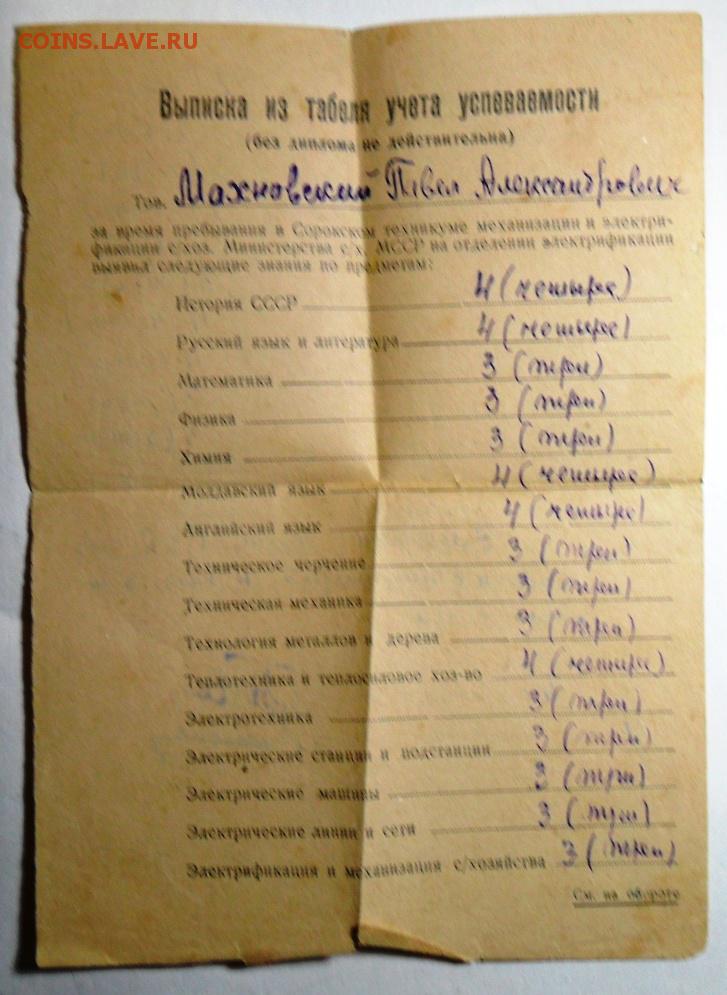 COINS.LAVE.RU
Выписка из табеля учета успеваемости
(без диплома не действительна)
Тов. Махновский Павел Александрович
за время пребывания в Сорокском техникуме механизации и электри-
фикации с/хоз. Министерства с/х. МССР на отделении электрификации
выявил следующие знания по предметам:
История СССР 4 (четыре)
Русский язык и литература 4 (четыре)
Математика 3 (три)
Физика 3 (три)
Химия 3 (три)
Молдавский язык 4 (четыре)
Английский язык 4 (четыре)
Техническое черчение 3 (три)
Техническая механика 3 (три)
Технология металлов и дерева 3 (три)
Теплотехника и теплосиловое хоз-во 4 (четыре)
Электротехника 3 (три)
Электрические станции и подстанции 3 (три)
Электрические машины 3 (три)
Электрические линии и сети 3 (три)
Электрификация и механизация с/хозяйства 3 (три)
См. на обороте